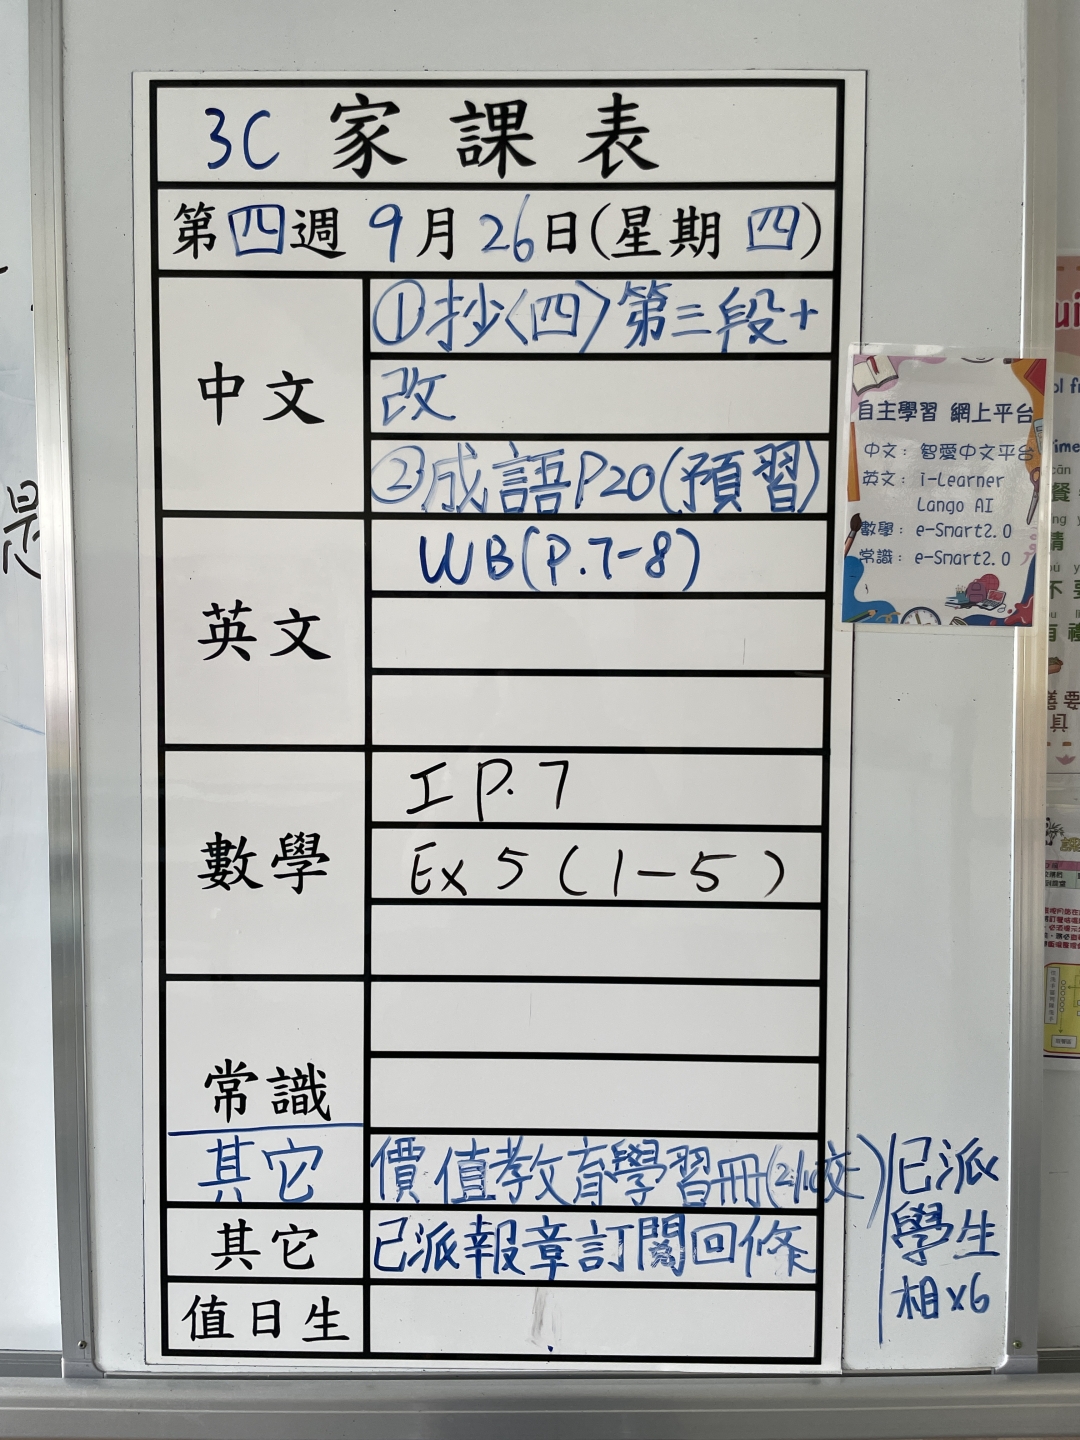 3C 家課表
第四週 9月26日(星期四)
中文
①抄〈四〉第三段+
改
②成語P20(預習)
英文
WB(P.7-8)
數學
工 P.7
Ex 5 (1-5)
常識
其它
價值教育學習冊(2/10交)
其它
已派報章訂閱回條
值日生
已派
學生
相x6
自主學習 網上平台
中文：智愛中文平台
英文：i-Learner
Lango AI
數學：e-Smart2.0
常識：e-Smart2.0